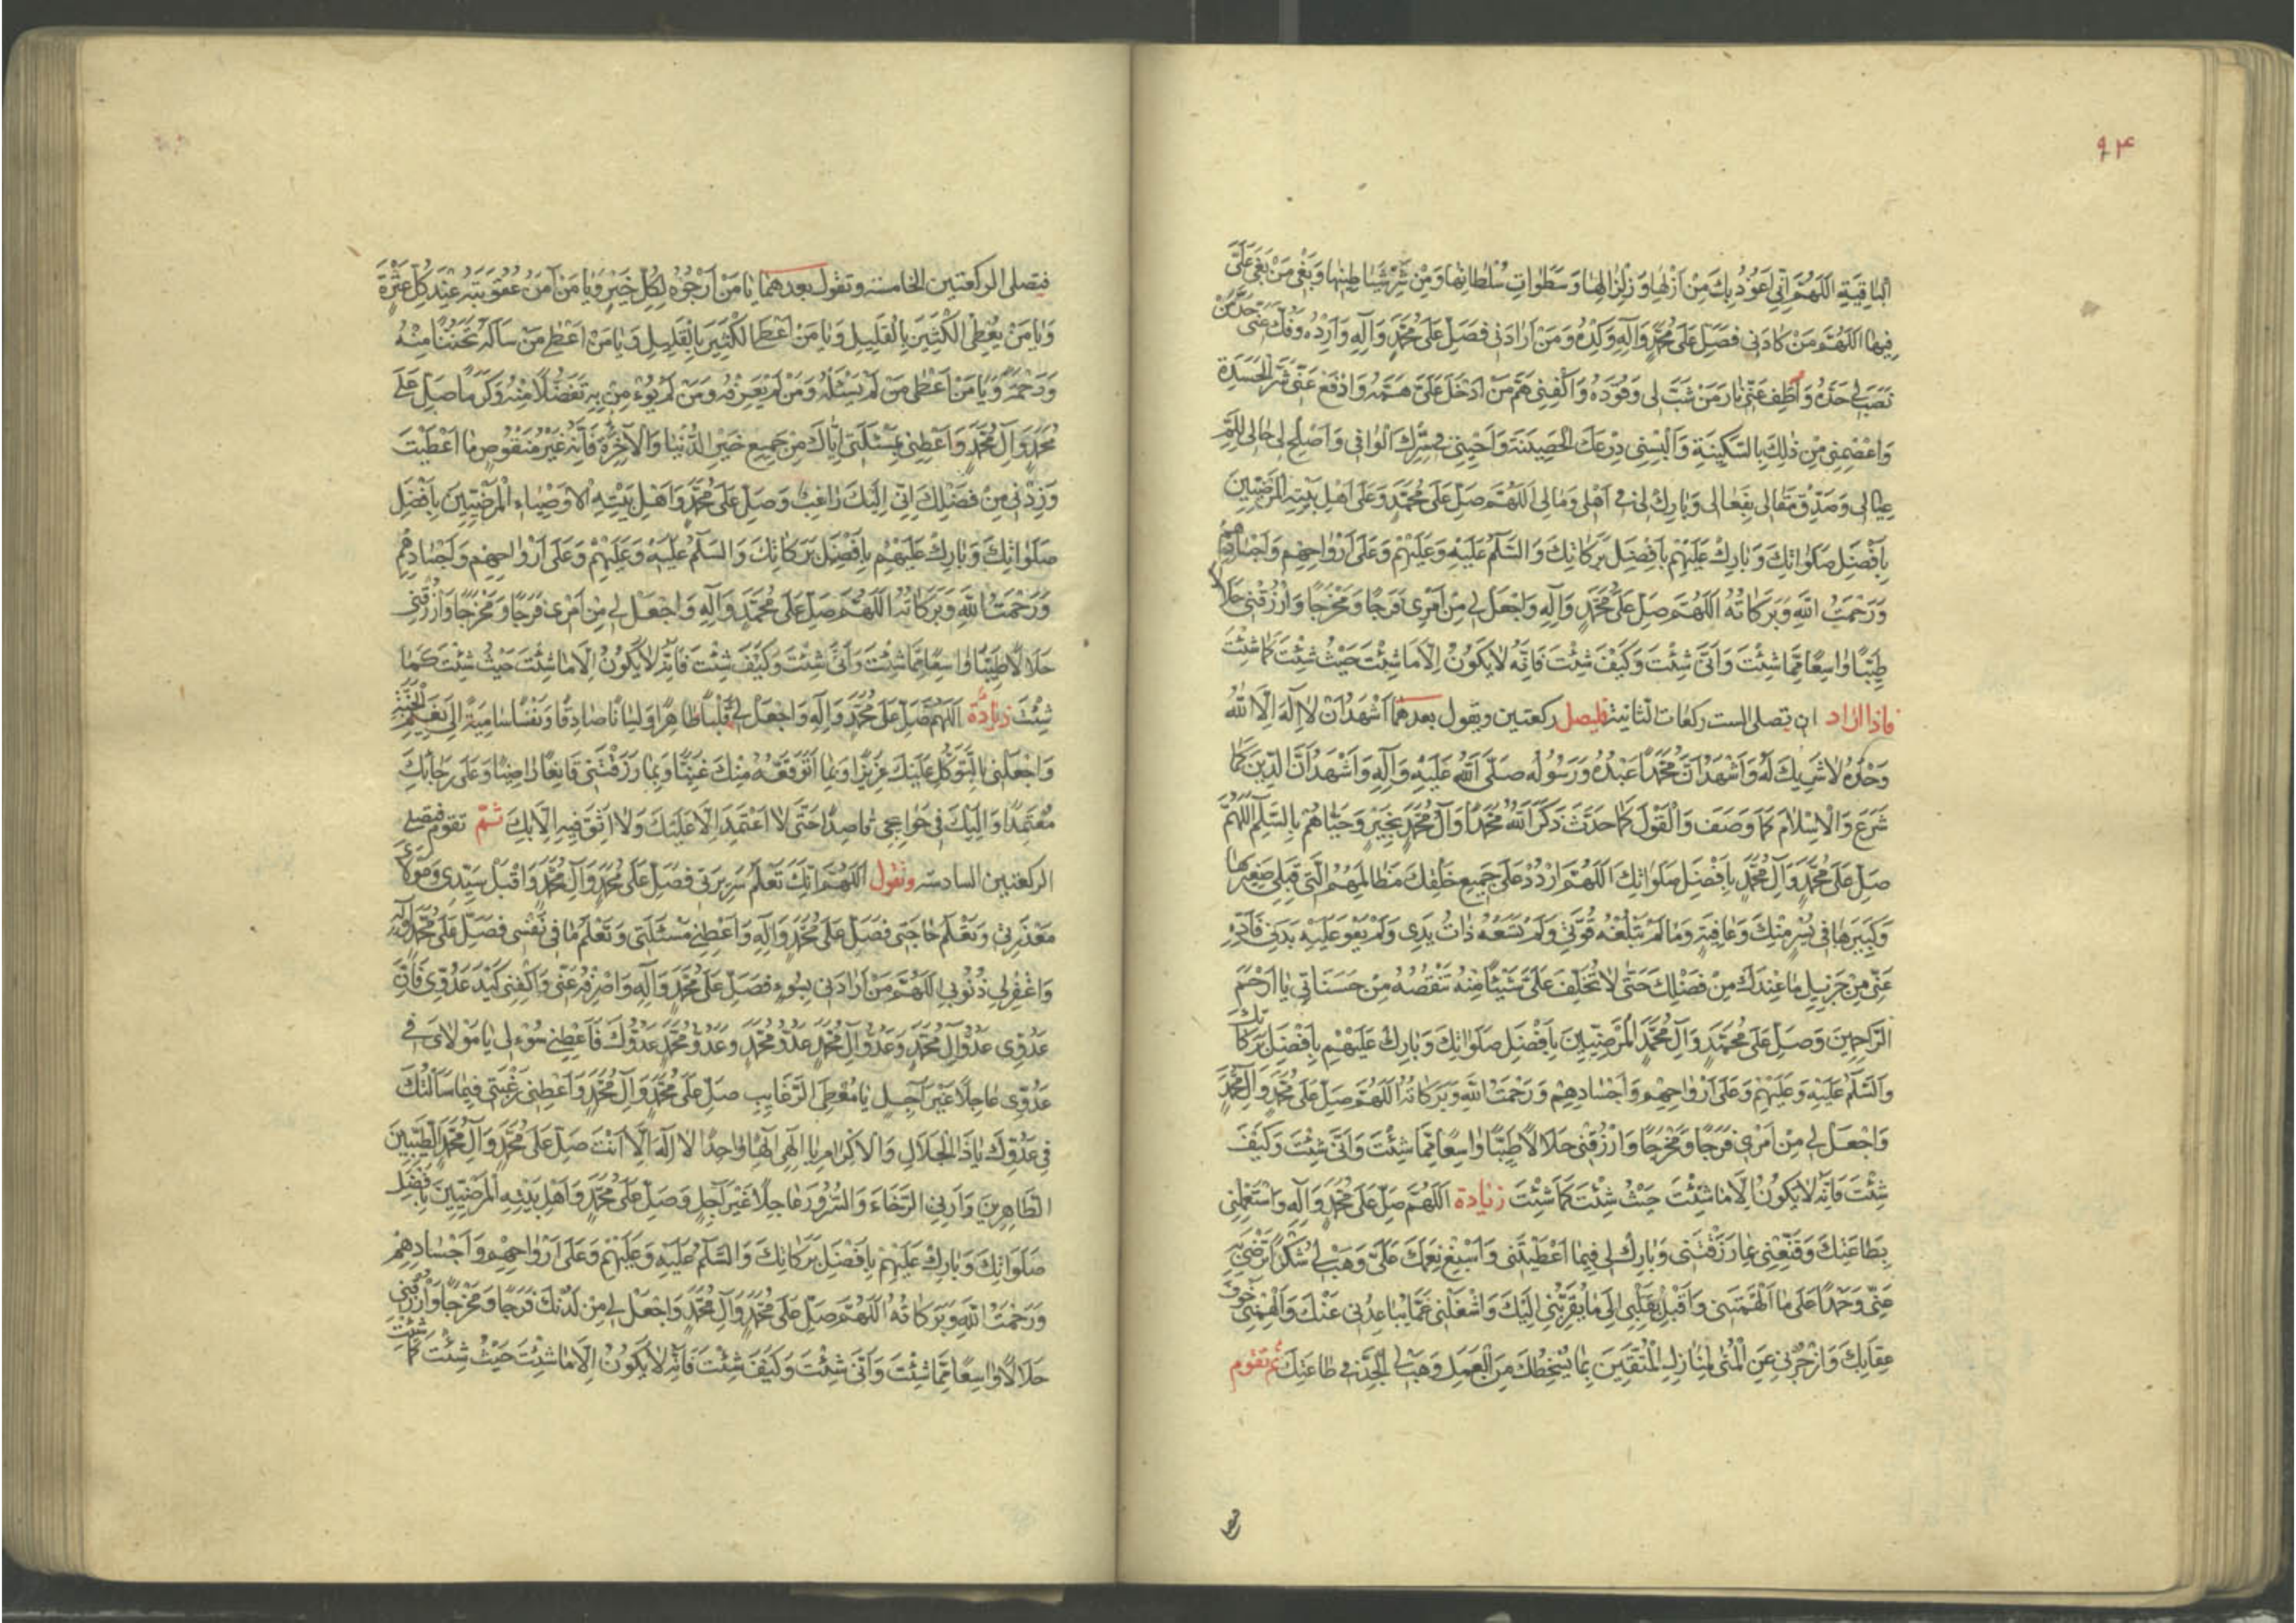 ٩٤
الباقية اللَّهُمَّ اِنّى اَعُوذُ بِكَ مِنْ اَزْلِها وَ زِلْزالِها وَ سَطَواتِ سُلْطانِها وَ مِنْ شَرِّ شَياطينِها وَ بَغْىِ مَنْ بَغى عَلَىَّ
فيها اللَّهُمَّ مَنْ كادَنى فَصَلِّ عَلى مُحَمَّدٍ وَ آلِهِ وَ كِدْهُ وَ مَنْ اَرادَنى فَصَلِّ عَلى مُحَمَّدٍ وَ آلِهِ وَ اَرِدْهُ وَ فُلَّ عَنّى حَدَّ مَنْ
نَصَبَ لى حَدَّهُ وَ اَطْفِ عَنّى نارَ مَنْ شَبَّ لى وَقُودَهُ وَ اكْفِنى هَمَّ مَنْ اَدْخَلَ عَلَىَّ هَمَّهُ وَ ادْفَعْ عَنّى شَرَّ الْحَسَدَةِ
وَ اعْصِمْنى مِنْ ذلِكَ بِالسَّكينَةِ وَ اَلْبِسْنى دِرْعَكَ الْحَصينَةَ وَ اَحْيِنى فى سِتْرِكَ الْواقى وَ اَصْلِحْ لى حالى
عِيالى وَ صَدِّقْ مَقالى بِفَعالى وَ بارِكْ لى فى اَهْلى وَ مالى اللَّهُمَّ صَلِّ عَلى مُحَمَّدٍ وَ عَلى اَهْلِ بَيْتِهِ الْمَرْضِيّينَ
بِاَفْضَلِ صَلَواتِكَ وَ بارِكْ عَلَيْهِمْ بِاَفْضَلِ بَرَكاتِكَ وَ السَّلامُ عَلَيْهِ وَ عَلَيْهِمْ وَ عَلى اَرْواحِهِمْ وَ اَجْسادِهِمْ
وَ رَحْمَتُ اللهِ وَ بَرَكاتُهُ اللَّهُمَّ صَلِّ عَلى مُحَمَّدٍ وَ آلِهِ وَ اجْعَلْ لى مِنْ اَمْرى فَرَجًا وَ مَخْرَجًا وَ ارْزُقْنى حَلالًا
طَيِّبًا واسِعًا مِمّا شِئْتَ وَ اَنّى شِئْتَ وَ كَيْفَ شِئْتَ فَاِنَّهُ لا يَكُونُ اِلّا ما شِئْتَ حَيْثُ شِئْتَ كَما شِئْتَ
فاذا اراد ان يصلى الست ركعات الثانية فليصل ركعتين ويقول بعدهما اَشْهَدُ اَنْ لا اِلهَ اِلَّا اللهُ
وَحْدَهُ لا شَريكَ لَهُ وَ اَشْهَدُ اَنَّ مُحَمَّدًا عَبْدُهُ وَ رَسُولُهُ صَلَّى اللهُ عَلَيْهِ وَ آلِهِ وَ اَشْهَدُ اَنَّ الدّينَ كَما
شَرَعَ وَ الْاِسْلامَ كَما وَصَفَ وَ الْقَوْلَ كَما حَدَّثَ ذَكَرَ اللهُ مُحَمَّدًا وَ آلَ مُحَمَّدٍ بِخَيْرٍ وَ حَيّاهُمْ بِالسَّلامِ اللَّهُمَّ
صَلِّ عَلى مُحَمَّدٍ وَ آلِ مُحَمَّدٍ بِاَفْضَلِ صَلَواتِكَ اللَّهُمَّ ارْدُدْ عَلى جَميعِ خَلْقِكَ مَظالِمَهُمُ الَّتى قِبَلى صَغيرَها
وَ كَبيرَها فى يُسْرٍ مِنْكَ وَ عافِيَةٍ وَ ما لَمْ تَبْلُغْهُ قُوَّتى وَ لَمْ تَسَعْهُ ذاتُ يَدى وَ لَمْ يَقْوَ عَلَيْهِ بَدَنى فَاَدِّهِ
عَنّى مِنْ جَزيلِ ما عِنْدَكَ مِنْ فَضْلِكَ حَتّى لا تُخَلِّفَ عَلَىَّ شَيْئًا مِنْهُ تَنْقُصُهُ مِنْ حَسَناتى يا اَرْحَمَ
الرّاحِمينَ وَ صَلِّ عَلى مُحَمَّدٍ وَ آلِ مُحَمَّدٍ الْمَرْضِيّينَ بِاَفْضَلِ صَلَواتِكَ وَ بارِكْ عَلَيْهِمْ بِاَفْضَلِ بَرَكاتِكَ
وَ السَّلامُ عَلَيْهِ وَ عَلَيْهِمْ وَ عَلى اَرْواحِهِمْ وَ اَجْسادِهِمْ وَ رَحْمَتُ اللهِ وَ بَرَكاتُهُ اللَّهُمَّ صَلِّ عَلى مُحَمَّدٍ وَ آلِ مُحَمَّدٍ
وَ اجْعَلْ لى مِنْ اَمْرى فَرَجًا وَ مَخْرَجًا وَ ارْزُقْنى حَلالًا طَيِّبًا واسِعًا مِمّا شِئْتَ وَ اَنّى شِئْتَ وَ كَيْفَ
شِئْتَ فَاِنَّهُ لا يَكُونُ اِلّا ما شِئْتَ حَيْثُ شِئْتَ كَما شِئْتَ زيادة اللَّهُمَّ صَلِّ عَلى مُحَمَّدٍ وَ آلِهِ وَ اسْتَعْمِلْنى
بِطاعَتِكَ وَ قَنِّعْنى بِما رَزَقْتَنى وَ بارِكْ لى فيما اَعْطَيْتَنى وَ اَسْبِغْ نِعَمَكَ عَلَىَّ وَ هَبْ لى شُكْرًا تَرْضى بِهِ
عَنّى وَ حَمْدًا عَلى ما اَلْهَمْتَنى وَ اَقْبِلْ بِقَلْبى اِلى ما يُقَرِّبُنى اِلَيْكَ وَ اشْغَلْنى عَمّا يُباعِدُنى عَنْكَ وَ اَلْهِمْنى خَوْفَ
عِقابِكَ وَ ازْجُرْنى عَنِ الْمُنى لِمَنازِلِ الْمُتَّقينَ بِما يُسْخِطُكَ مِنَ الْعَمَلِ وَ هَبْ لى الْجِدَّ فى طاعَتِكَ ثم تقوم
فتصلى الركعتين الخامسة وتقول بعدهما يا مَنْ اَرْجُوهُ لِكُلِّ خَيْرٍ وَ يا مَنْ آمَنُ عُقُوبَتَهُ عِنْدَ كُلِّ عَثْرَةٍ
وَ يا مَنْ يُعْطِى الْكَثيرَ بِالْقَليلِ وَ يا مَنْ اَعْطَى الْكَثيرَ بِالْقَليلِ وَ يا مَنْ اَعْطى مَنْ سَاَلَهُ تَحَنُّنًا مِنْهُ
وَ رَحْمَةً وَ يا مَنْ اَعْطى مَنْ لَمْ يَسْئَلْهُ وَ مَنْ لَمْ يَعْرِفْهُ وَ مَنْ لَمْ يُؤْمِنْ بِهِ تَفَضُّلًا مِنْهُ وَ كَرَمًا صَلِّ عَلى
مُحَمَّدٍ وَ آلِ مُحَمَّدٍ وَ اَعْطِنى بِمَسْئَلَتى اِيّاكَ مِنْ جَميعِ خَيْرِ الدُّنْيا وَ الْآخِرَةِ فَاِنَّهُ غَيْرُ مَنْقُوصٍ ما اَعْطَيْتَ
وَ زِدْنى مِنْ فَضْلِكَ اِنّى اِلَيْكَ راغِبٌ وَ صَلِّ عَلى مُحَمَّدٍ وَ اَهْلِ بَيْتِهِ الْاَوْصِياءِ الْمَرْضِيّينَ بِاَفْضَلِ
صَلَواتِكَ وَ بارِكْ عَلَيْهِمْ بِاَفْضَلِ بَرَكاتِكَ وَ السَّلامُ عَلَيْهِ وَ عَلَيْهِمْ وَ عَلى اَرْواحِهِمْ وَ اَجْسادِهِمْ
وَ رَحْمَتُ اللهِ وَ بَرَكاتُهُ اللَّهُمَّ صَلِّ عَلى مُحَمَّدٍ وَ آلِهِ وَ اجْعَلْ لى مِنْ اَمْرى فَرَجًا وَ مَخْرَجًا وَ ارْزُقْنى
حَلالًا طَيِّبًا واسِعًا مِمّا شِئْتَ وَ اَنّى شِئْتَ وَ كَيْفَ شِئْتَ فَاِنَّهُ لا يَكُونُ اِلّا ما شِئْتَ حَيْثُ شِئْتَ كَما
شِئْتَ زيادة اللَّهُمَّ صَلِّ عَلى مُحَمَّدٍ وَ آلِهِ وَ اجْعَلْ لى قَلْبًا طاهِرًا وَ لِسانًا صادِقًا وَ نَفْسًا سامِيَةً اِلى نَعيمِ الْجَنَّةِ
وَ اجْعَلْنى بِالتَّوَكُّلِ عَلَيْكَ عَزيزًا وَ بِما اَتَوَقَّعُهُ مِنْكَ غَنِيًّا وَ بِما رَزَقْتَنى قانِعًا راضِيًا وَ عَلى رَجائِكَ
مُعْتَمِدًا وَ اِلَيْكَ فى حَوائِجى قاصِدًا حَتّى لا اَعْتَمِدَ اِلّا عَلَيْكَ وَ لا اَثِقَ فيهِ اِلّا بِكَ ثمّ تقوم فتصلى
الركعتين السادسة وتقول اللَّهُمَّ اِنَّكَ تَعْلَمُ سَريرَتى فَصَلِّ عَلى مُحَمَّدٍ وَ آلِ مُحَمَّدٍ وَ اقْبَلْ سَيِّدى وَ مَوْلاىَ
مَعْذِرَتى وَ تَعْلَمُ حاجَتى فَصَلِّ عَلى مُحَمَّدٍ وَ آلِهِ وَ اَعْطِنى مَسْئَلَتى وَ تَعْلَمُ ما فى نَفْسى فَصَلِّ عَلى مُحَمَّدٍ وَ آلِهِ
وَ اغْفِرْ لى ذُنُوبى اللَّهُمَّ مَنْ اَرادَنى بِسُوءٍ فَصَلِّ عَلى مُحَمَّدٍ وَ آلِهِ وَ اصْرِفْهُ عَنّى وَ اكْفِنى كَيْدَ عَدُوّى فَاِنَّ
عَدُوّى عَدُوُّ آلِ مُحَمَّدٍ وَ عَدُوَّ آلِ مُحَمَّدٍ عَدُوُّ مُحَمَّدٍ وَ عَدُوَّ مُحَمَّدٍ عَدُوُّكَ فَاَعْطِنى سُؤْلى يا مَوْلاىَ فى
عَدُوّى عاجِلًا غَيْرَ آجِلٍ يا مُعْطِىَ الرَّغايِبِ صَلِّ عَلى مُحَمَّدٍ وَ آلِ مُحَمَّدٍ وَ اَعْطِنى رَغْبَتى فيما سَاَلْتُكَ
فى عَدُوِّكَ يا ذَا الْجَلالِ وَ الْاِكْرامِ يا اِلهى اِلهًا واحِدًا لا اِلهَ اِلّا اَنْتَ صَلِّ عَلى مُحَمَّدٍ وَ آلِ مُحَمَّدٍ الطَّيِّبينَ
الطّاهِرينَ وَ اَرِنِى الرَّخاءَ وَ السُّرُورَ عاجِلًا غَيْرَ آجِلٍ وَ صَلِّ عَلى مُحَمَّدٍ وَ اَهْلِ بَيْتِهِ الْمَرْضِيّينَ بِاَفْضَلِ
صَلَواتِكَ وَ بارِكْ عَلَيْهِمْ بِاَفْضَلِ بَرَكاتِكَ وَ السَّلامُ عَلَيْهِ وَ عَلَيْهِمْ وَ عَلى اَرْواحِهِمْ وَ اَجْسادِهِمْ
وَ رَحْمَتُ اللهِ وَ بَرَكاتُهُ اللَّهُمَّ صَلِّ عَلى مُحَمَّدٍ وَ آلِ مُحَمَّدٍ وَ اجْعَلْ لى مِنْ لَدُنْكَ فَرَجًا وَ مَخْرَجًا وَ ارْزُقْنى
حَلالًا واسِعًا مِمّا شِئْتَ وَ اَنّى شِئْتَ وَ كَيْفَ شِئْتَ فَاِنَّهُ لا يَكُونُ اِلّا ما شِئْتَ حَيْثُ شِئْتَ كَما شِئْتَ